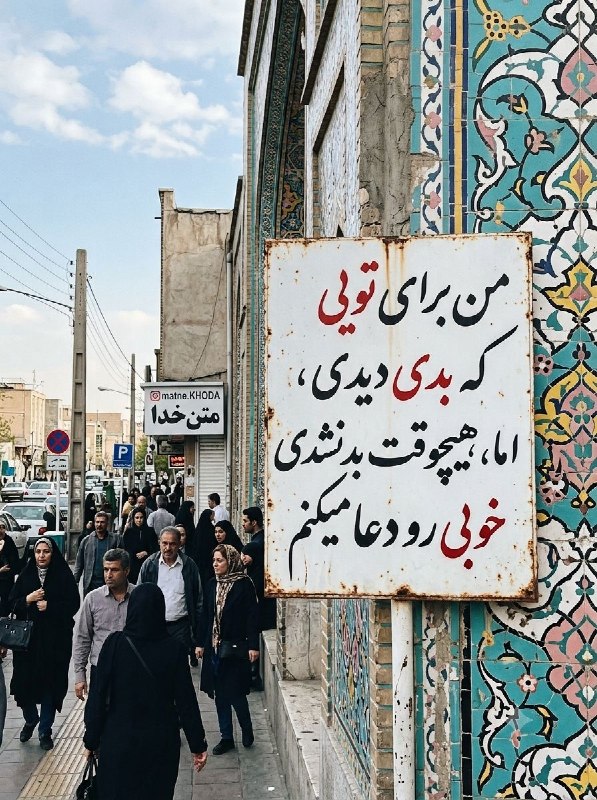 من برای تویی
که بدی دیدی،
اما، هیچوقت بد نشدی
خوبی رو دعا میکنم
matne.KHODA
متن خدا
P